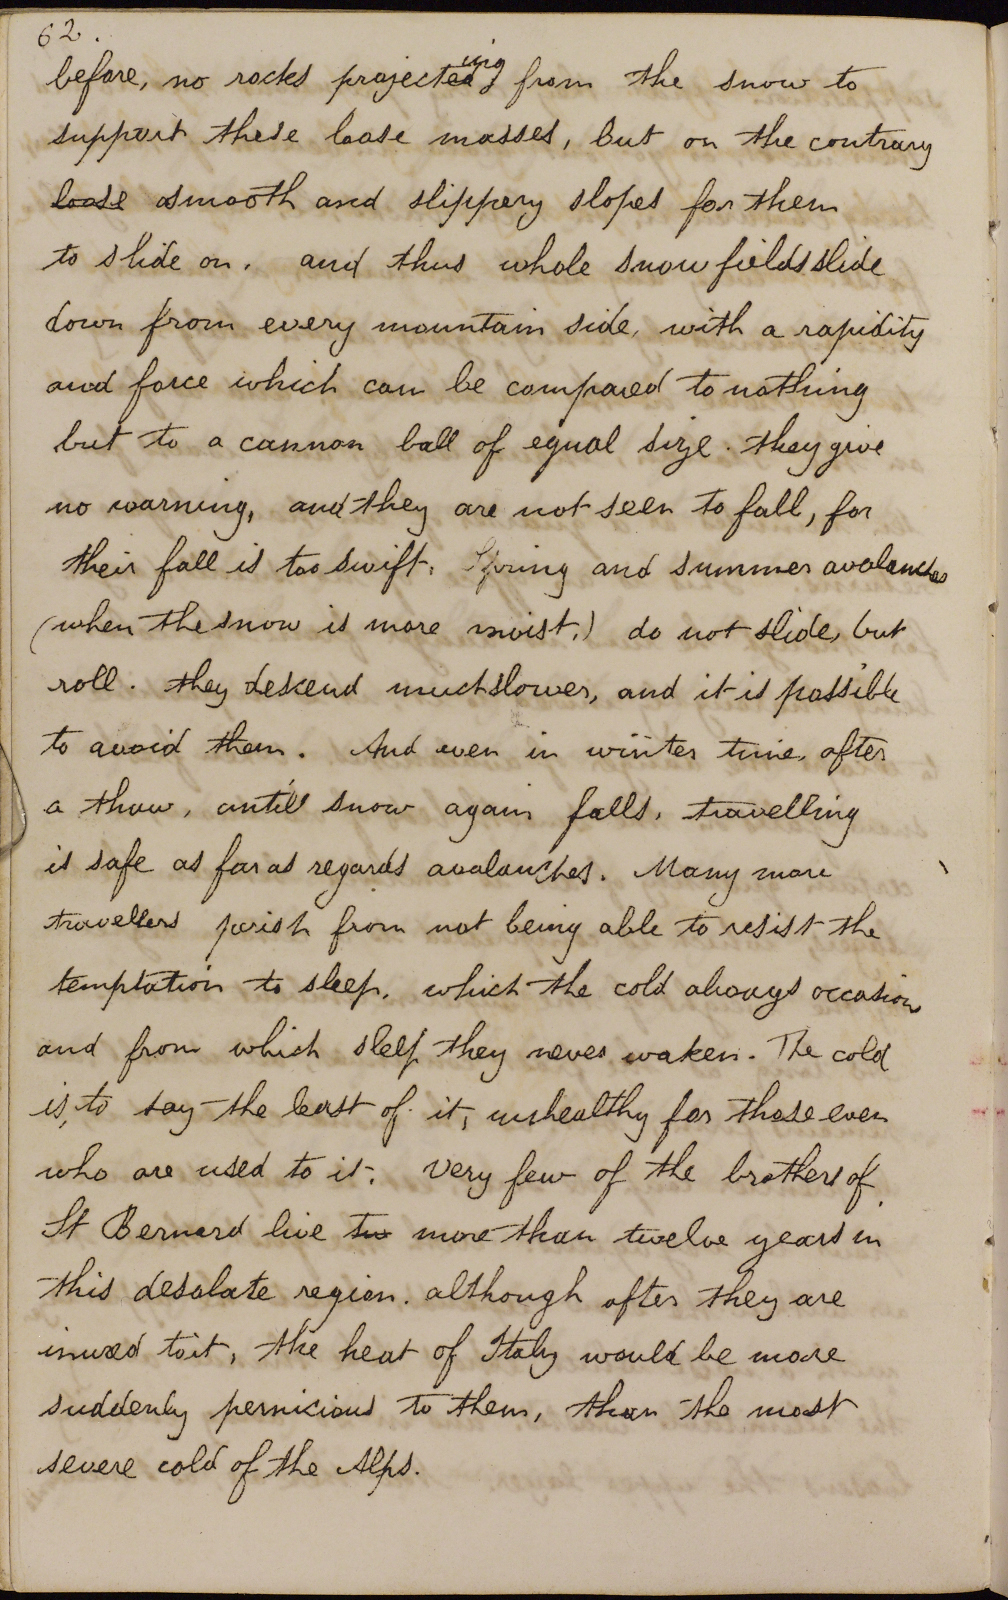 62.
before, no rocks projecting from the snow to
support these loose masses, but on the contrary
loose smooth and slippery slopes for them
to slide on. and thus whole snow fields slide
down from every mountain side, with a rapidity
and force which can be compared to nothing
but to a cannon ball of equal size. they give
no warning, and they are not seen to fall, for
their fall is too swift. Spring and summer avalanches
(when the snow is more moist.) do not slide, but
roll. they descend much slower, and it is possible
to avoid them. And even in winter time, after
a thaw, untill snow again falls, travelling
is safe as far as regards avalanches. Many more
travellers perish from not being able to resist the
temptation to sleep, which the cold always occasion
and from which sleep they never waken. The cold
is, to say the least of it, unhealthy for those even
who are used to it. very few of the brothers of
St Bernard live tw more than twelve years in
this desolate region. although after they are
inured to it, the heat of Italy would be more
suddenly pernicious to them, than the most
severe cold of the Alps.